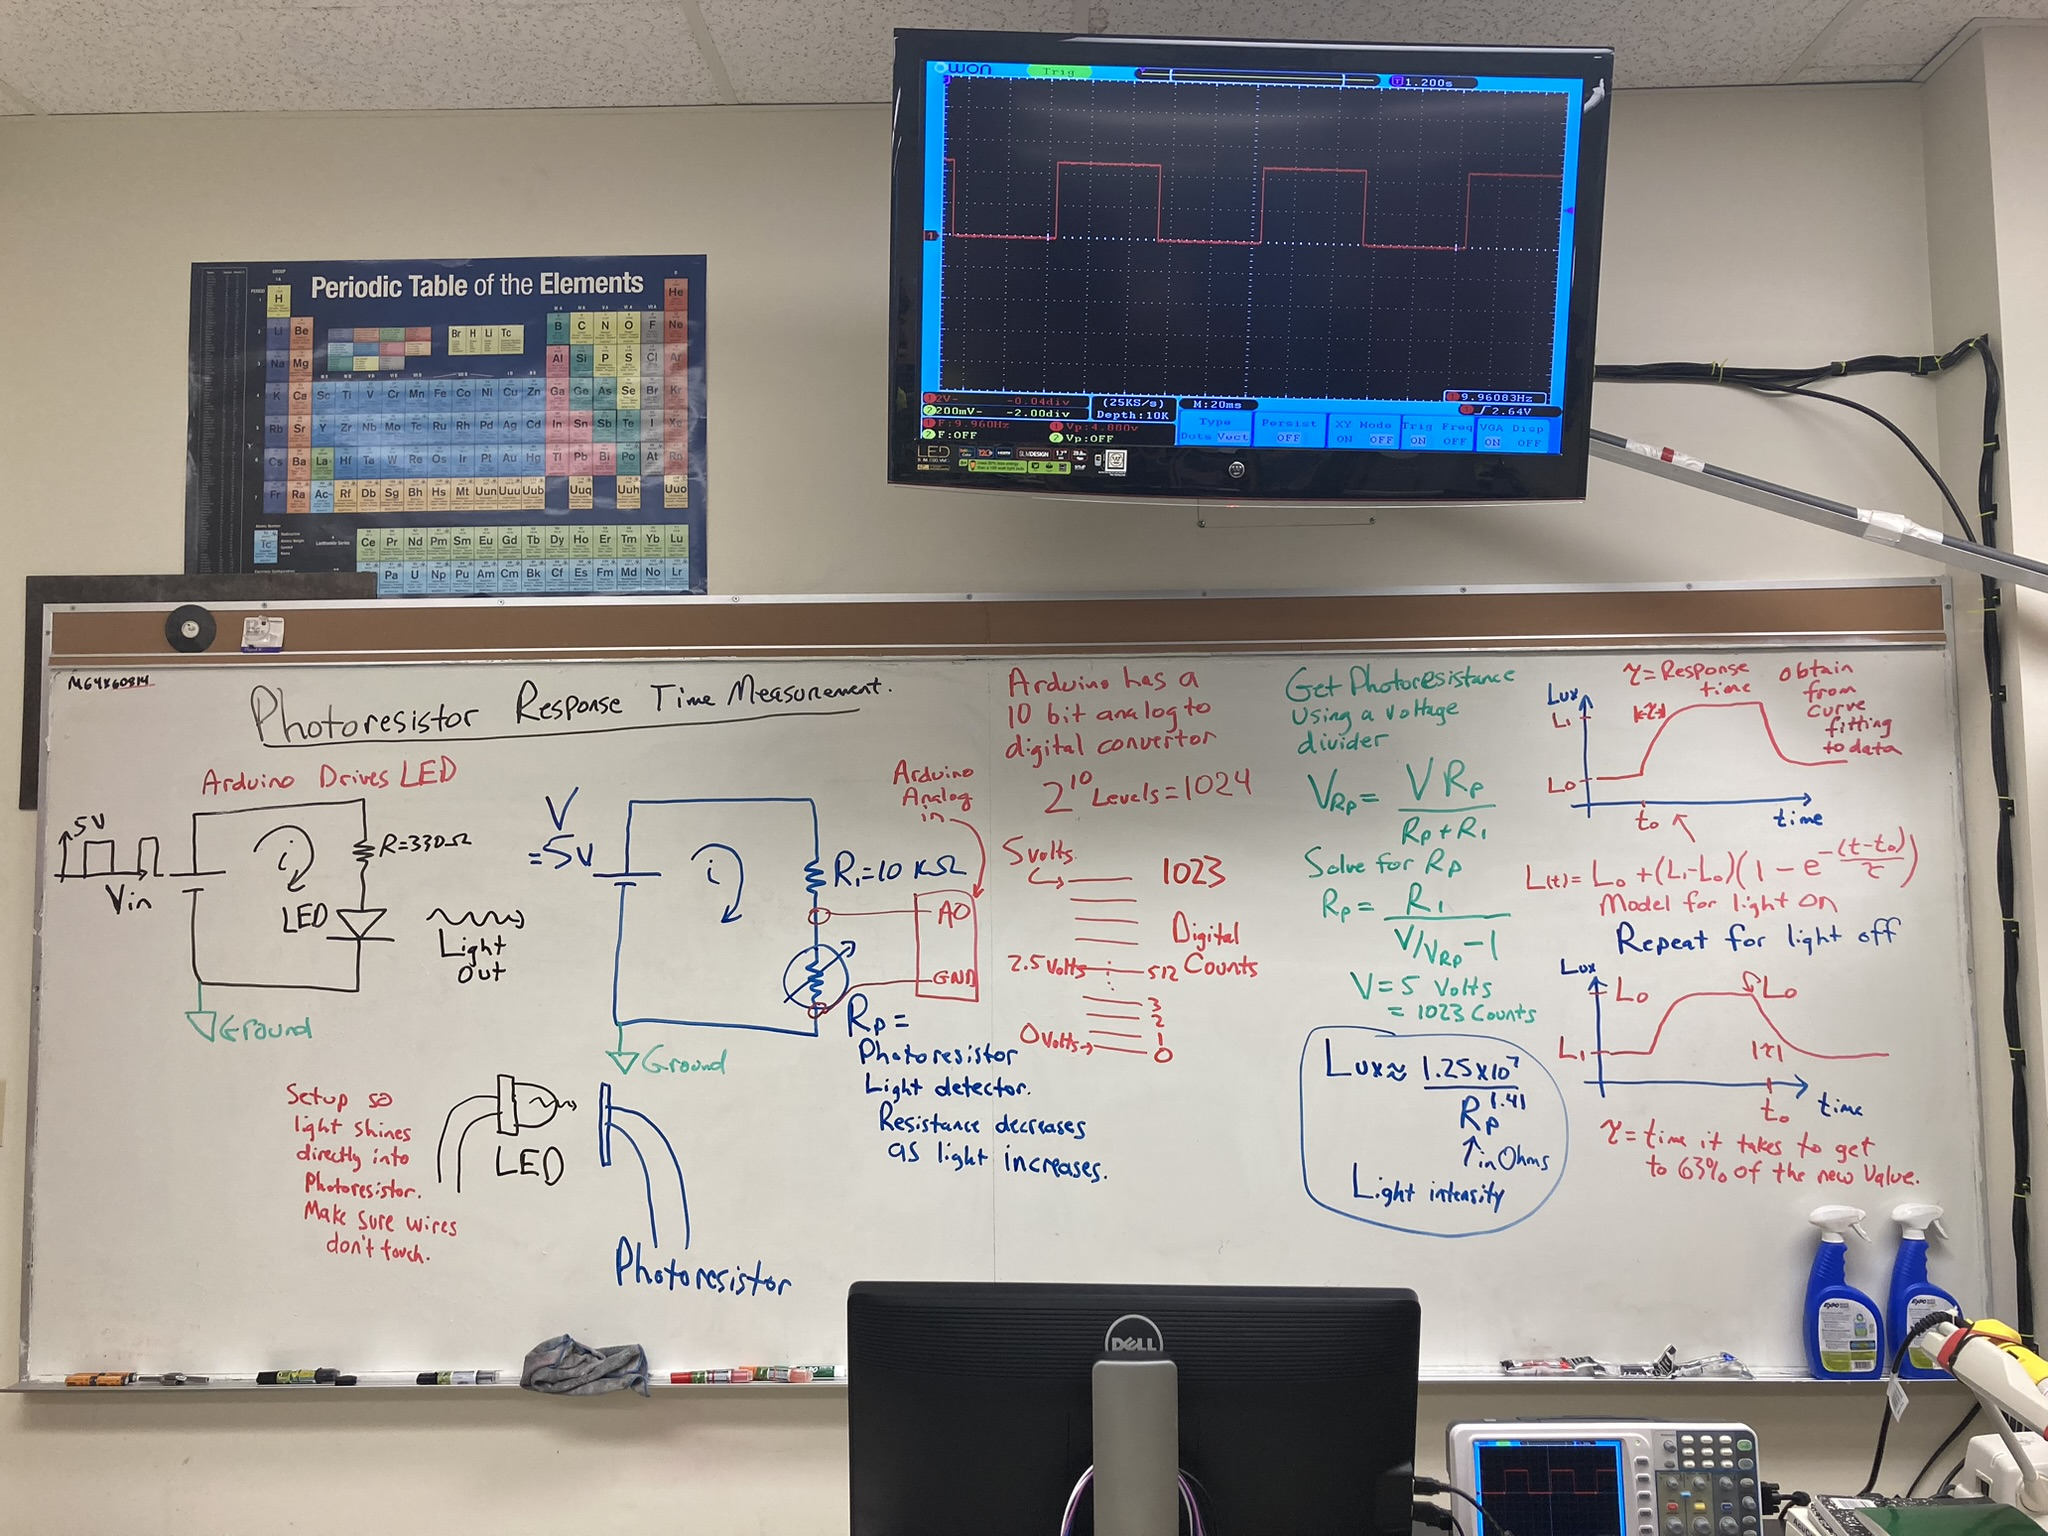 OWON
Trig
T 1.200s
1
1 2V~ -0.04div
2 200mV~ -2.00div
(25KS/s)
Depth:10K
M:20ms
9.96083Hz
1 2.64V
1 F:9.960Hz
1 Vp:4.880v
2 F:OFF
2 Vp:OFF
Type
Dots Vect
Persist
OFF
XY Mode
ON OFF
Trig Freq
ON OFF
VGA Disp
ON OFF
LED
SLIMDESIGN
Periodic Table of the Elements
H He
Li Be B C N O F Ne
Br H Li Tc
Na Mg Al Si P S Cl Ar
K Ca Sc Ti V Cr Mn Fe Co Ni Cu Zn Ga Ge As Se Br Kr
Rb Sr Y Zr Nb Mo Tc Ru Rh Pd Ag Cd In Sn Sb Te I Xe
Cs Ba La Hf Ta W Re Os Ir Pt Au Hg Tl Pb Bi Po At Rn
Fr Ra Ac Rf Db Sg Bh Hs Mt Uun Uuu Uub Uuq Uuh Uuo
Tc
Ce Pr Nd Pm Sm Eu Gd Tb Dy Ho Er Tm Yb Lu
Pa U Np Pu Am Cm Bk Cf Es Fm Md No Lr
Photoresistor Response Time Measurement.
Arduino Drives LED
5V
Vin
i
R=330Ω
LED
Light
out
Ground
V
=5V
i
R₁=10 KΩ
Arduino
Analog
in
A0
GND
Rp =
Photoresistor
Light detector.
Resistance decreases
as light increases.
Ground
Setup so
light shines
directly into
Photoresistor.
Make sure wires
don't touch.
LED
Photoresistor
Arduino has a
10 bit analog to
digital convertor
2¹⁰ Levels = 1024
5 volts
1023
Digital
Counts
2.5 volts
512
3
2
1
0 volts
0
Get Photoresistance
using a voltage
divider
VRp = V Rp / Rp + R₁
Solve for Rp
Rp = R₁ / V/VRp - 1
V = 5 Volts
= 1023 Counts
Lux ≈ 1.25x10⁷ / Rp^1.41
in Ohms
Light intensity
τ = Response
time
obtain
from
curve
fitting
to data
Lux
L₁
τ
L₀
t₀
time
L(t) = L₀ + (L₁-L₀)(1 - e^-(t-t₀)/τ)
Model for light on
Repeat for light off
Lux
L₀
L₀
L₁
τ
t₀
time
τ = time it takes to get
to 63% of the new value.
DELL
EXPO
EXPO